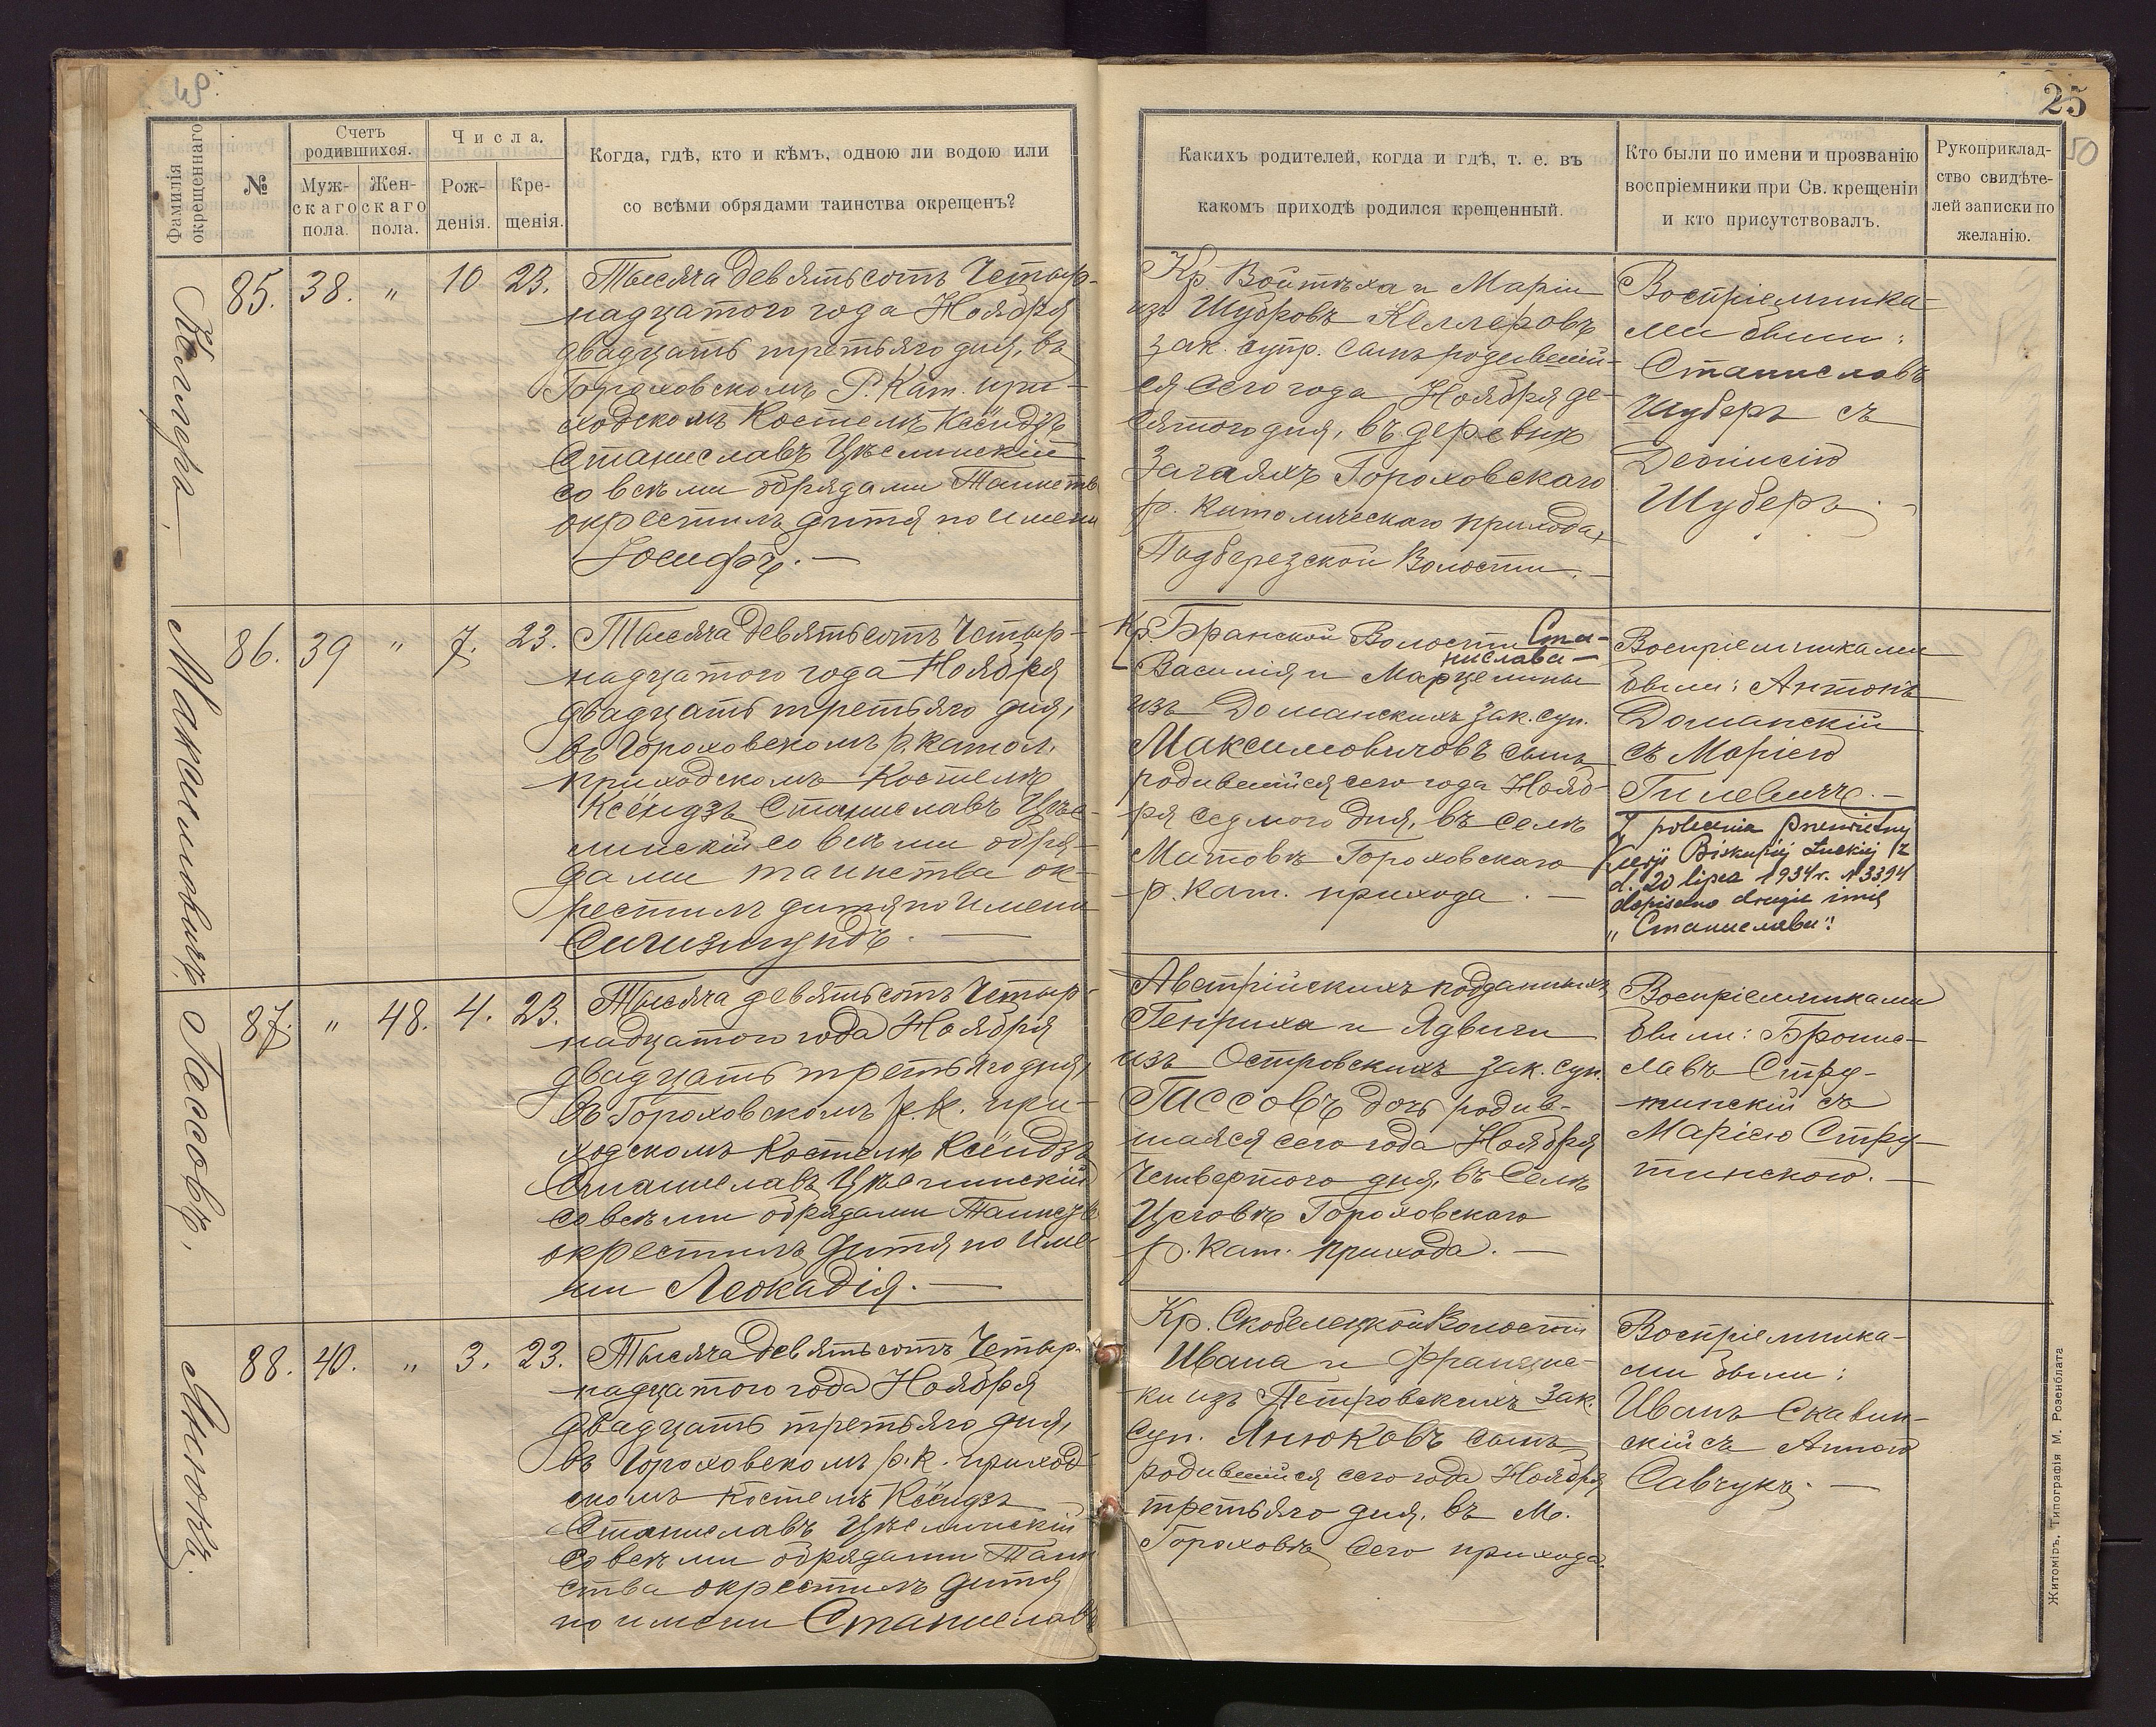 49.
25
50
Фамилія окрещеннаго
№
Счетъ родившихся.
Муж-
скаго
пола.
Жен-
скаго
пола.
Числа.
Рож-
денія.
Кре-
щенія.
Когда, гдѣ, кто и кѣмъ, одною ли водою или
со всѣми обрядами таинства окрещенъ?
Какихъ родителей, когда и гдѣ, т. е. въ
какомъ приходѣ родился крещенный.
Кто были по имени и прозванію
воспріемники при Св. крещеніи
и кто присутствовалъ.
Рукоприклад-
ство свидѣте-
лей записки по
желанію.
Келлеръ.
85. 38. " 10 23.
Тысяча девятьсотъ Четыр-
надцатого года Ноября
двадцать третьяго дня, въ
Гороховскомъ Р. Кат. при-
ходскомъ Костелѣ Ксёндзъ
Станиславъ Цѣслинскій
со всѣми обрядами Таинства
окрестилъ дитя по имени
Іосифъ. —
Кр. Войтѣха и Маріи
изъ Шуберовъ Келлеровъ
зак. супр. сынъ родившій-
ся сего года Ноября де-
сятого дня, въ деревнѣ
Загаяхъ Гороховскаго
р. Католическаго прихода,
Подберезской Волости. —
Воспріемника-
ми были:
Станиславъ
Шуберъ съ
Деонисію
Шуберъ. —
Максимовичъ.
86. 39 " 7. 23.
Тысяча девятьсотъ Четыр-
надцатого года Ноября
двадцать третьяго дня,
въ Гороховскомъ р. катол.
приходскомъ Костелѣ
Ксёндзъ Станиславъ Цѣс-
линскій со всѣми обря-
дами таинства ок-
рестилъ дитя по имени
Сигизмундъ. —
Кр. Бранской Волости Ста-
нислава —
Василія и Марцелины
изъ Доманскихъ зак. суп.
Максимовичовъ сынъ
родившійся сего года Нояб-
ря седмого дня, въ селѣ
Матовѣ Гороховскаго
р. кат. прихода. —
Воспріемниками
были: Антонъ
Доманскій
съ Маріею
Гилевичъ. —
Z polecenia Prześwietnej
Kurji Biskupiej Łuckiej z
d. 20 lipca 1934 r. N 3394
dopisano drugie imię
„Станислава".
Гассовъ.
87. " 48. 4. 23.
Тысяча девятьсотъ Четыр-
надцатого года Ноября
двадцать третьяго дня,
въ Гороховскомъ р. к. при-
ходскомъ Костелѣ Ксёндзъ
Станиславъ Цѣслинскій
со всѣми обрядами Таинства
окрестилъ дитя по име-
ни Леокадія. —
Австрійскихъ подданныхъ
Генриха и Ядвиги
изъ Островскихъ зак. суп.
Гассовъ дочь родив-
шаяся сего года Ноября
четвертого дня, въ Селѣ
Цеговѣ Гороховскаго
р. кат. прихода. —
Воспріемниками
были: Бронис-
лавъ Стру-
тинскій съ
Маріею Стру-
тинскою. —
Янюкъ.
88. 40. " 3. 23.
Тысяча девятьсотъ Четыр-
надцатого года Ноября
двадцать третьяго дня,
въ Гороховскомъ р. к. приход-
скомъ костелѣ Ксёндзъ
Станиславъ Цѣслинскій
со всѣми обрядами Таин-
ства окрестилъ дитя
по имени Станиславъ
Кр. Скобелецкой Волости
Ивана и Францис-
ки изъ Петровскихъ зак.
суп. Янюковъ сынъ
родившійся сего года Ноября
третьяго дня, въ м.
Гороховѣ, сего прихода.
Воспріемника-
ми были:
Иванъ Скавин-
скій съ Анною
Савчукъ. —
Житомiръ, Типографія М. Розенблата